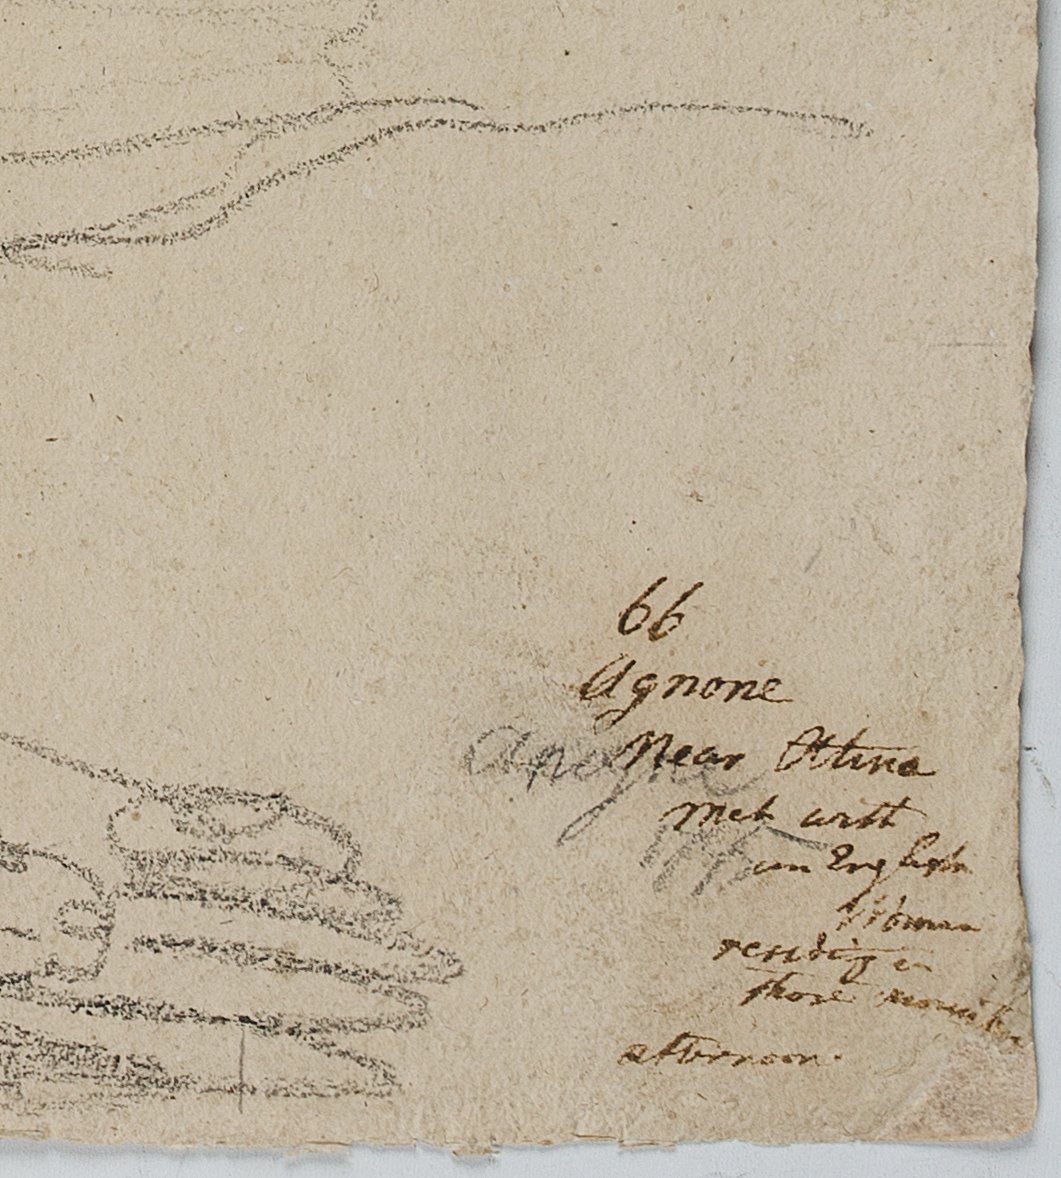 66
Agnone
Near Attina
met with
an English
Woman
residing in
those mountains
afternoon.